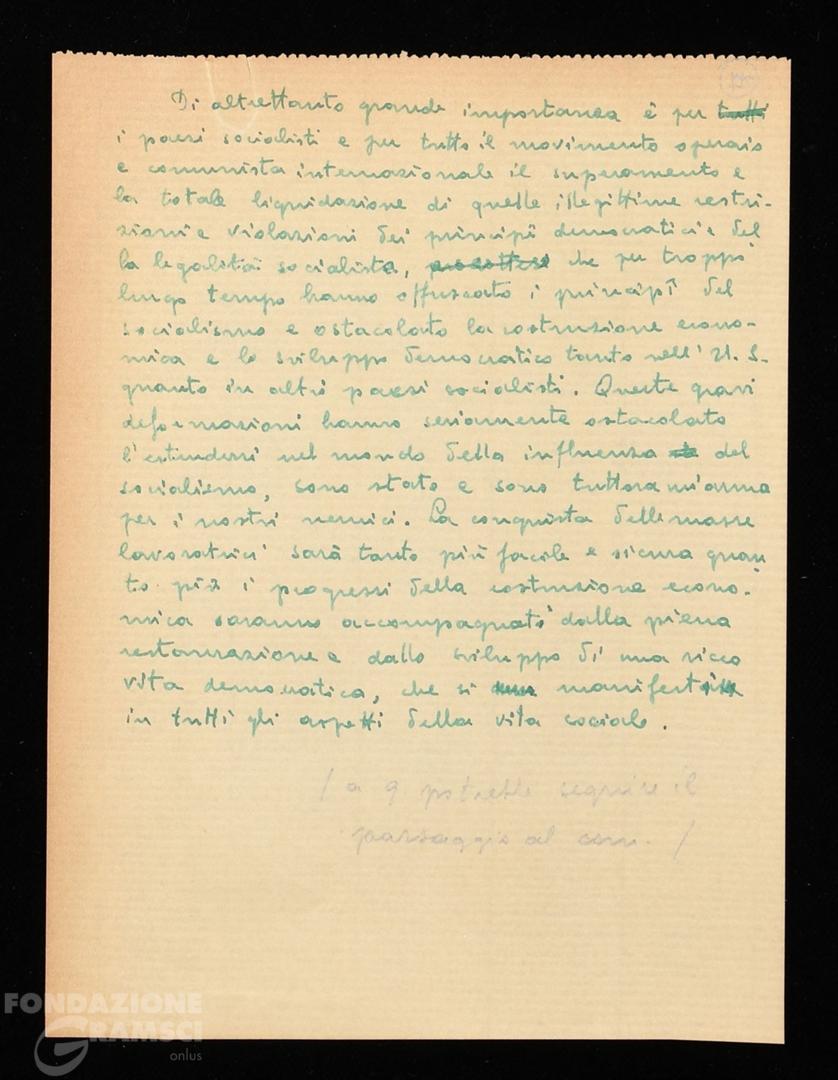 Di altrettanto grande importanza è per tutti
i paesi socialisti e per tutto il movimento operaio
e comunista internazionale il superamento e
la totale liquidazione di quelle illegittime restri-
zioni e violazioni dei principî democratici e del
la legalità socialista, che per troppo
lungo tempo hanno offuscato i principî del
socialismo e ostacolato la costruzione econo-
mica e lo sviluppo democratico tanto nell' U. S.
quanto in altri paesi socialisti. Queste gravi
deformazioni hanno seriamente ostacolato
l'estendersi nel mondo della influenza del
socialismo, sono state e sono tuttora un'arma
per i nostri nemici. La conquista delle masse
lavoratrici sarà tanto più facile e sicura quan
to più i progressi della costruzione econo-
mica saranno accompagnati dalla piena
restaurazione e dallo sviluppo di una ricca
vita democratica, che si manifesti
in tutti gli aspetti della vita sociale.
/ a q potrebbe seguire il
passaggio al com. /
FONDAZIONE
GRAMSCI
onlus